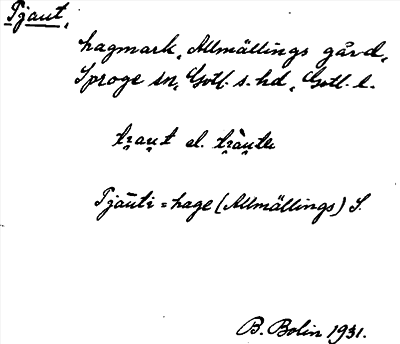 Tjaut,
hagmark, Allmällings gård,
Sproge sn, Gotl. s. hd, Gotl. l.
el.
Tjäuti = hage (Allmällings) S.
B. Bolin 1931.